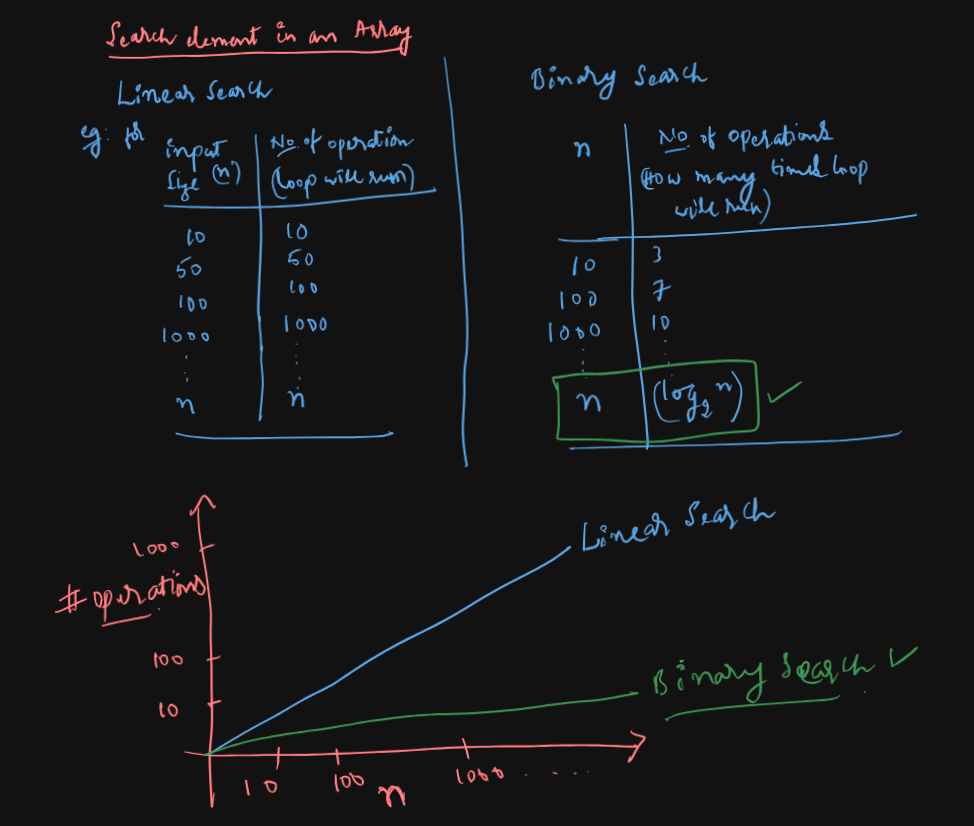 Search element in an Array
Linear Search
eg: for
input size (n) | No. of operation (loop will run)
10 | 10
50 | 50
100 | 100
1000 | 1000
⋮ | ⋮
n | n
Binary Search
n | No. of operations (How many times loop will run)
10 | 3
100 | 7
1000 | 10
⋮ | ⋮
n | (log₂n) ✓
# operations
1000
100
10
10 100 1000 .....
n
Linear Search
Binary Search ✓